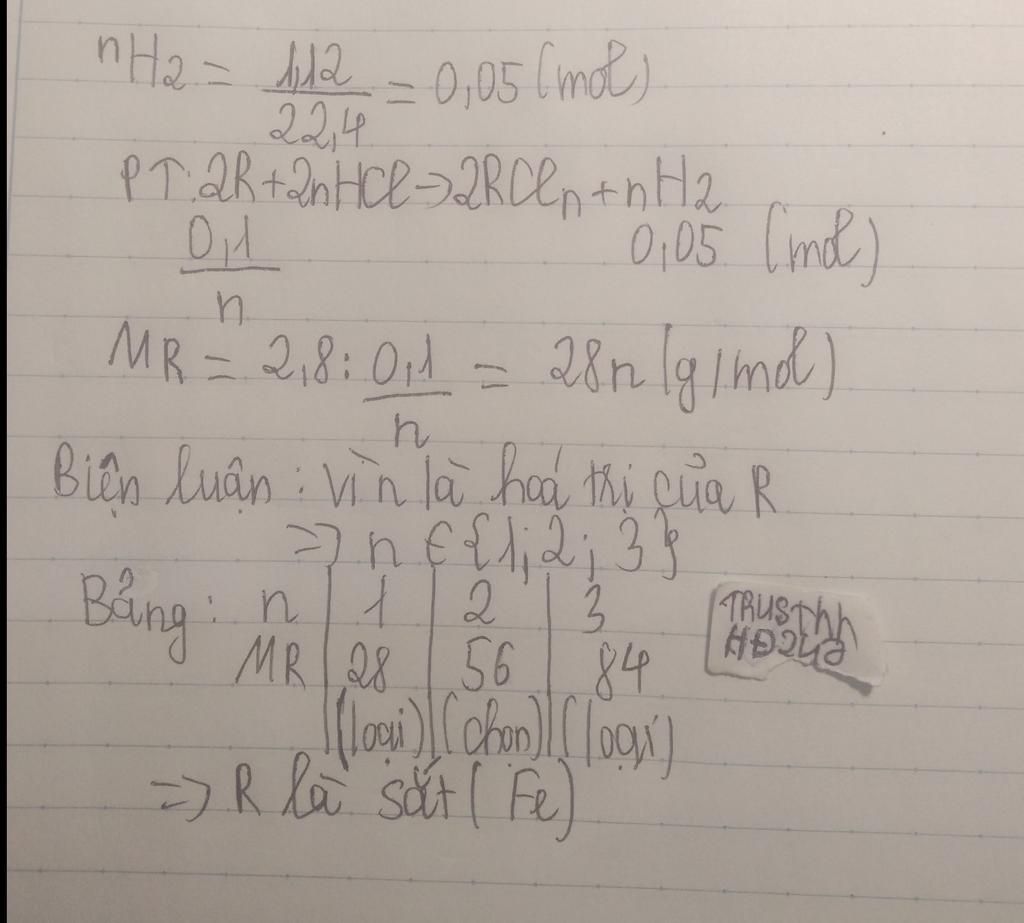 nH2 = 1,12/22,4 = 0,05 (mol)
PT: 2R + 2nHCl → 2RCln + nH2
0,1/n 0,05 (mol)
MR = 2,8 : 0,1/n = 28n (g/mol)
Biện luận : vì n là hoá trị của R
=> n ∈ {1; 2; 3}
Bảng : n | 1 | 2 | 3
MR | 28 | 56 | 84
(loại) | (chọn) | (loại)
=> R là sắt (Fe)
TRUSThh